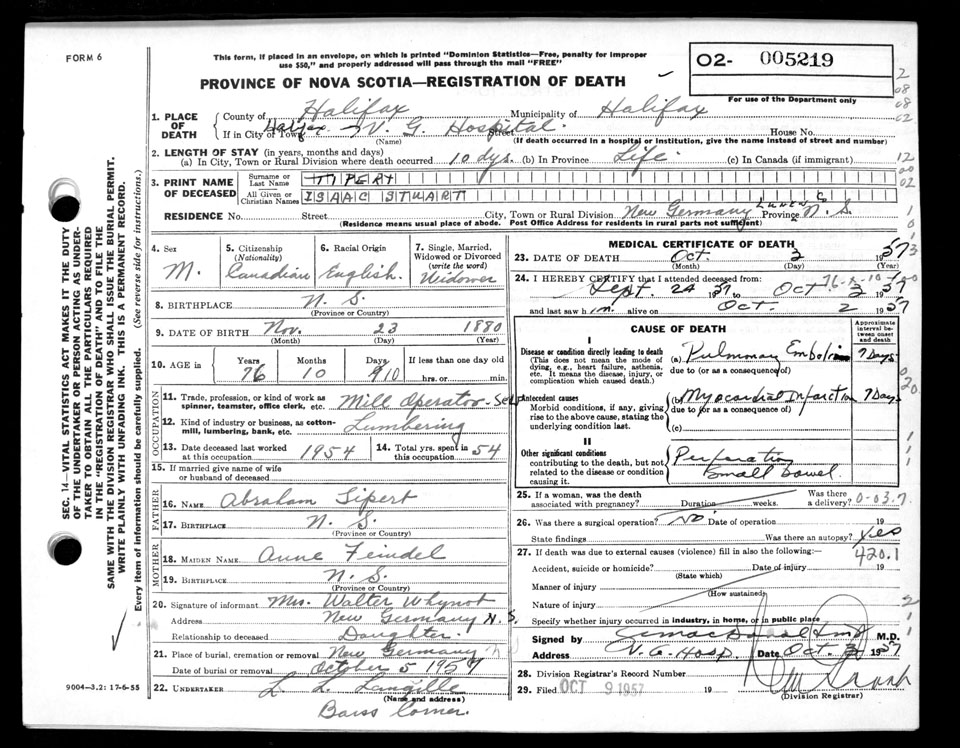 FORM 6
This form, if placed in an envelope, on which is printed "Dominion Statistics—Free, penalty for improper
use $50," and properly addressed will pass through the mail "FREE"
PROVINCE OF NOVA SCOTIA—REGISTRATION OF DEATH
02- 005219
For use of the Department only
SEC. 14—VITAL STATISTICS ACT MAKES IT THE DUTY
OF THE UNDERTAKER OR PERSON ACTING AS UNDER-
TAKER TO OBTAIN ALL THE PARTICULARS REQUIRED
IN THE "REGISTRATION OF DEATH" AND TO FILE THE
SAME WITH THE DIVISION REGISTRAR WHO SHALL ISSUE THE BURIAL PERMIT.
WRITE PLAINLY WITH UNFADING INK. THIS IS A PERMANENT RECORD.
Every item of information should be carefully supplied. (See reverse side for instructions.)
1. PLACE OF DEATH
County of Halifax Municipality of Halifax
If in City or Town Halifax V. G. Hospital. Street House No.
(Name) (If death occurred in a hospital or institution, give the name instead of street and number)
2. LENGTH OF STAY (in years, months and days)
(a) In City, Town or Rural Division where death occurred 10 dys. (b) In Province Life (c) In Canada (if immigrant)
3. PRINT NAME OF DECEASED
Surname or Last Name TIPERT
All Given or Christian Names ISAAC STUART
RESIDENCE No. Street City, Town or Rural Division New Germany Lunen Co Province N. S.
(Residence means usual place of abode. Post Office Address for residents in rural parts not sufficient)
4. Sex M.
5. Citizenship (Nationality) Canadian
6. Racial Origin English.
7. Single, Married, Widowed or Divorced (write the word) Widower
8. BIRTHPLACE N. S.
(Province or Country)
9. DATE OF BIRTH Nov. 23 1880
(Month) (Day) (Year)
10. AGE in Years 76 Months 10 Days 10 If less than one day old
hrs. or min.
OCCUPATION
11. Trade, profession, or kind of work as spinner, teamster, office clerk, etc. Mill Operator - Self
12. Kind of industry or business, as cotton-mill, lumbering, bank, etc. Lumbering
13. Date deceased last worked at this occupation 1954
14. Total yrs. spent in this occupation 54
15. If married give name of wife or husband of deceased
FATHER
16. NAME Abraham Tipert
17. BIRTHPLACE N. S.
(Province or Country)
MOTHER
18. MAIDEN NAME Anne Feindel
19. BIRTHPLACE N. S.
(Province or Country)
20. Signature of informant Mrs. Walter Whynot
Address New Germany N. S.
Relationship to deceased Daughter.
21. Place of burial, cremation or removal New Germany
Date of burial or removal October 5 1957
22. UNDERTAKER L. L. Langille
(Name and address)
Barss Corner.
9004-3.2: 17-6-55
MEDICAL CERTIFICATE OF DEATH
23. DATE OF DEATH Oct. 2 1957
(Month) (Day) (Year)
24. I HEREBY CERTIFY that I attended deceased from:
Sept. 24 1957 to Oct 2 1957
and last saw him alive on Oct. 2 1957
CAUSE OF DEATH
Approximate interval between onset and death
I
Disease or condition directly leading to death
(This does not mean the mode of dying, e.g., heart failure, asthenia, etc. It means the disease, injury, or complication which caused death.)
(a) Pulmonary Embolism 7 Days
due to (or as a consequence of)
Antecedent causes
Morbid conditions, if any, giving rise to the above cause, stating the underlying condition last.
(b) Myocardial Infarction 7 Days
due to (or as a consequence of)
(c)
II
Other significant conditions
contributing to the death, but not related to the disease or condition causing it.
Perforation
Small bowel
25. If a woman, was the death associated with pregnancy? Duration weeks. Was there a delivery? 0-03.7.
26. Was there a surgical operation? No. Date of operation 19
State findings Was there an autopsy? Yes
27. If death was due to external causes (violence) fill in also the following:— 420.1
Accident, suicide or homicide? Date of injury 19
(State which)
Manner of injury
(How sustained)
Nature of injury
Specify whether injury occurred in industry, in home, or in public place
Signed by M.D.
Address V. G. Hosp. Date Oct. 1957
28. Division Registrar's Record Number
29. Filed OCT 9 1957 19
(Division Registrar)